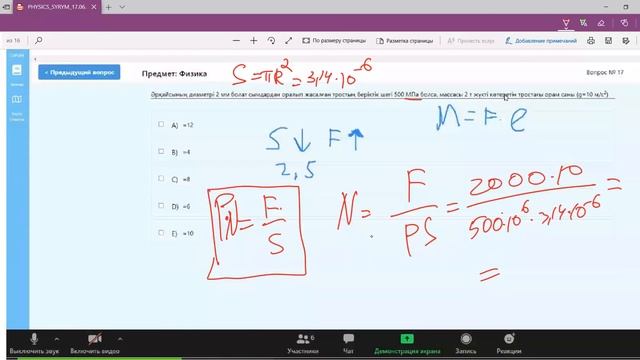 PHYSICS_SYRYM_17.06.
из 16
По размеру страницы
Размер страницы
Добавить подпись
Стереть
Предыдущий вопрос
Предмет: Физика
Вопрос № 17
S=πR²=3,14·10⁻⁶
Әрқайсының диаметрі 2 мм болат сымдардан оралып жасалған тростың беріктік шегі 500 МПа болса, массасы 2 т жүкті көтеретін тростағы орам саны (g=10 м/с²)
A) =12
B) =4
C) =8
D) =6
E) =10
S↓ F↑
2,5
M=F·l
PN=F/S
N=F/PS=2000·10/500·10⁶·3,14·10⁻⁶=
=
6
Выключить звук
Выключить видео
Участники
Чат
Демонстрация экрана
Запись
Реакции